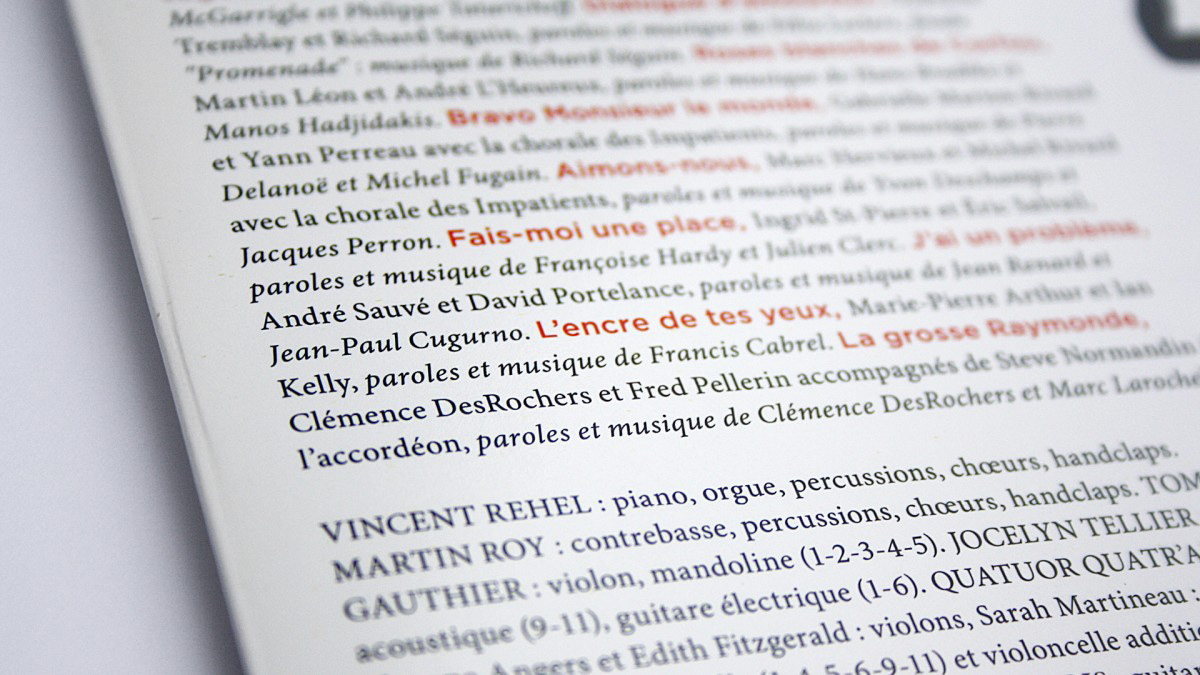 McGarrigle et Philippe
Tremblay et Richard Séguin, paroles et musique de
"Promenade" : musique de Richard Séguin.
Martin Léon et André L'Heureux, paroles et musique de
Manos Hadjidakis. Bravo Monsieur le monde,
et Yann Perreau avec la chorale des Impatients, paroles et musique de
Delanoë et Michel Fugain. Aimons-nous, Marc Hervieux et Michel Rivard
avec la chorale des Impatients, paroles et musique de Yvon Deschamps et
Jacques Perron. Fais-moi une place, Ingrid St-Pierre et Éric Salvail,
paroles et musique de Françoise Hardy et Julien Clerc. J'ai un problème,
André Sauvé et David Portelance, paroles et musique de Jean Renard et
Jean-Paul Cugurno. L'encre de tes yeux, Marie-Pierre Arthur et Ian
Kelly, paroles et musique de Francis Cabrel. La grosse Raymonde,
Clémence DesRochers et Fred Pellerin accompagnés de Steve Normandin
l'accordéon, paroles et musique de Clémence DesRochers et Marc Laroche
VINCENT REHEL : piano, orgue, percussions, chœurs, handclaps.
MARTIN ROY : contrebasse, percussions, chœurs, handclaps. TOM
GAUTHIER : violon, mandoline (1-2-3-4-5). JOCELYN TELLIER
acoustique (9-11), guitare électrique (1-6). QUATUOR QUATR'A
Angers et Edith Fitzgerald : violons, Sarah Martineau :
(1-4-5-6-9-11) et violoncelle additi
guita